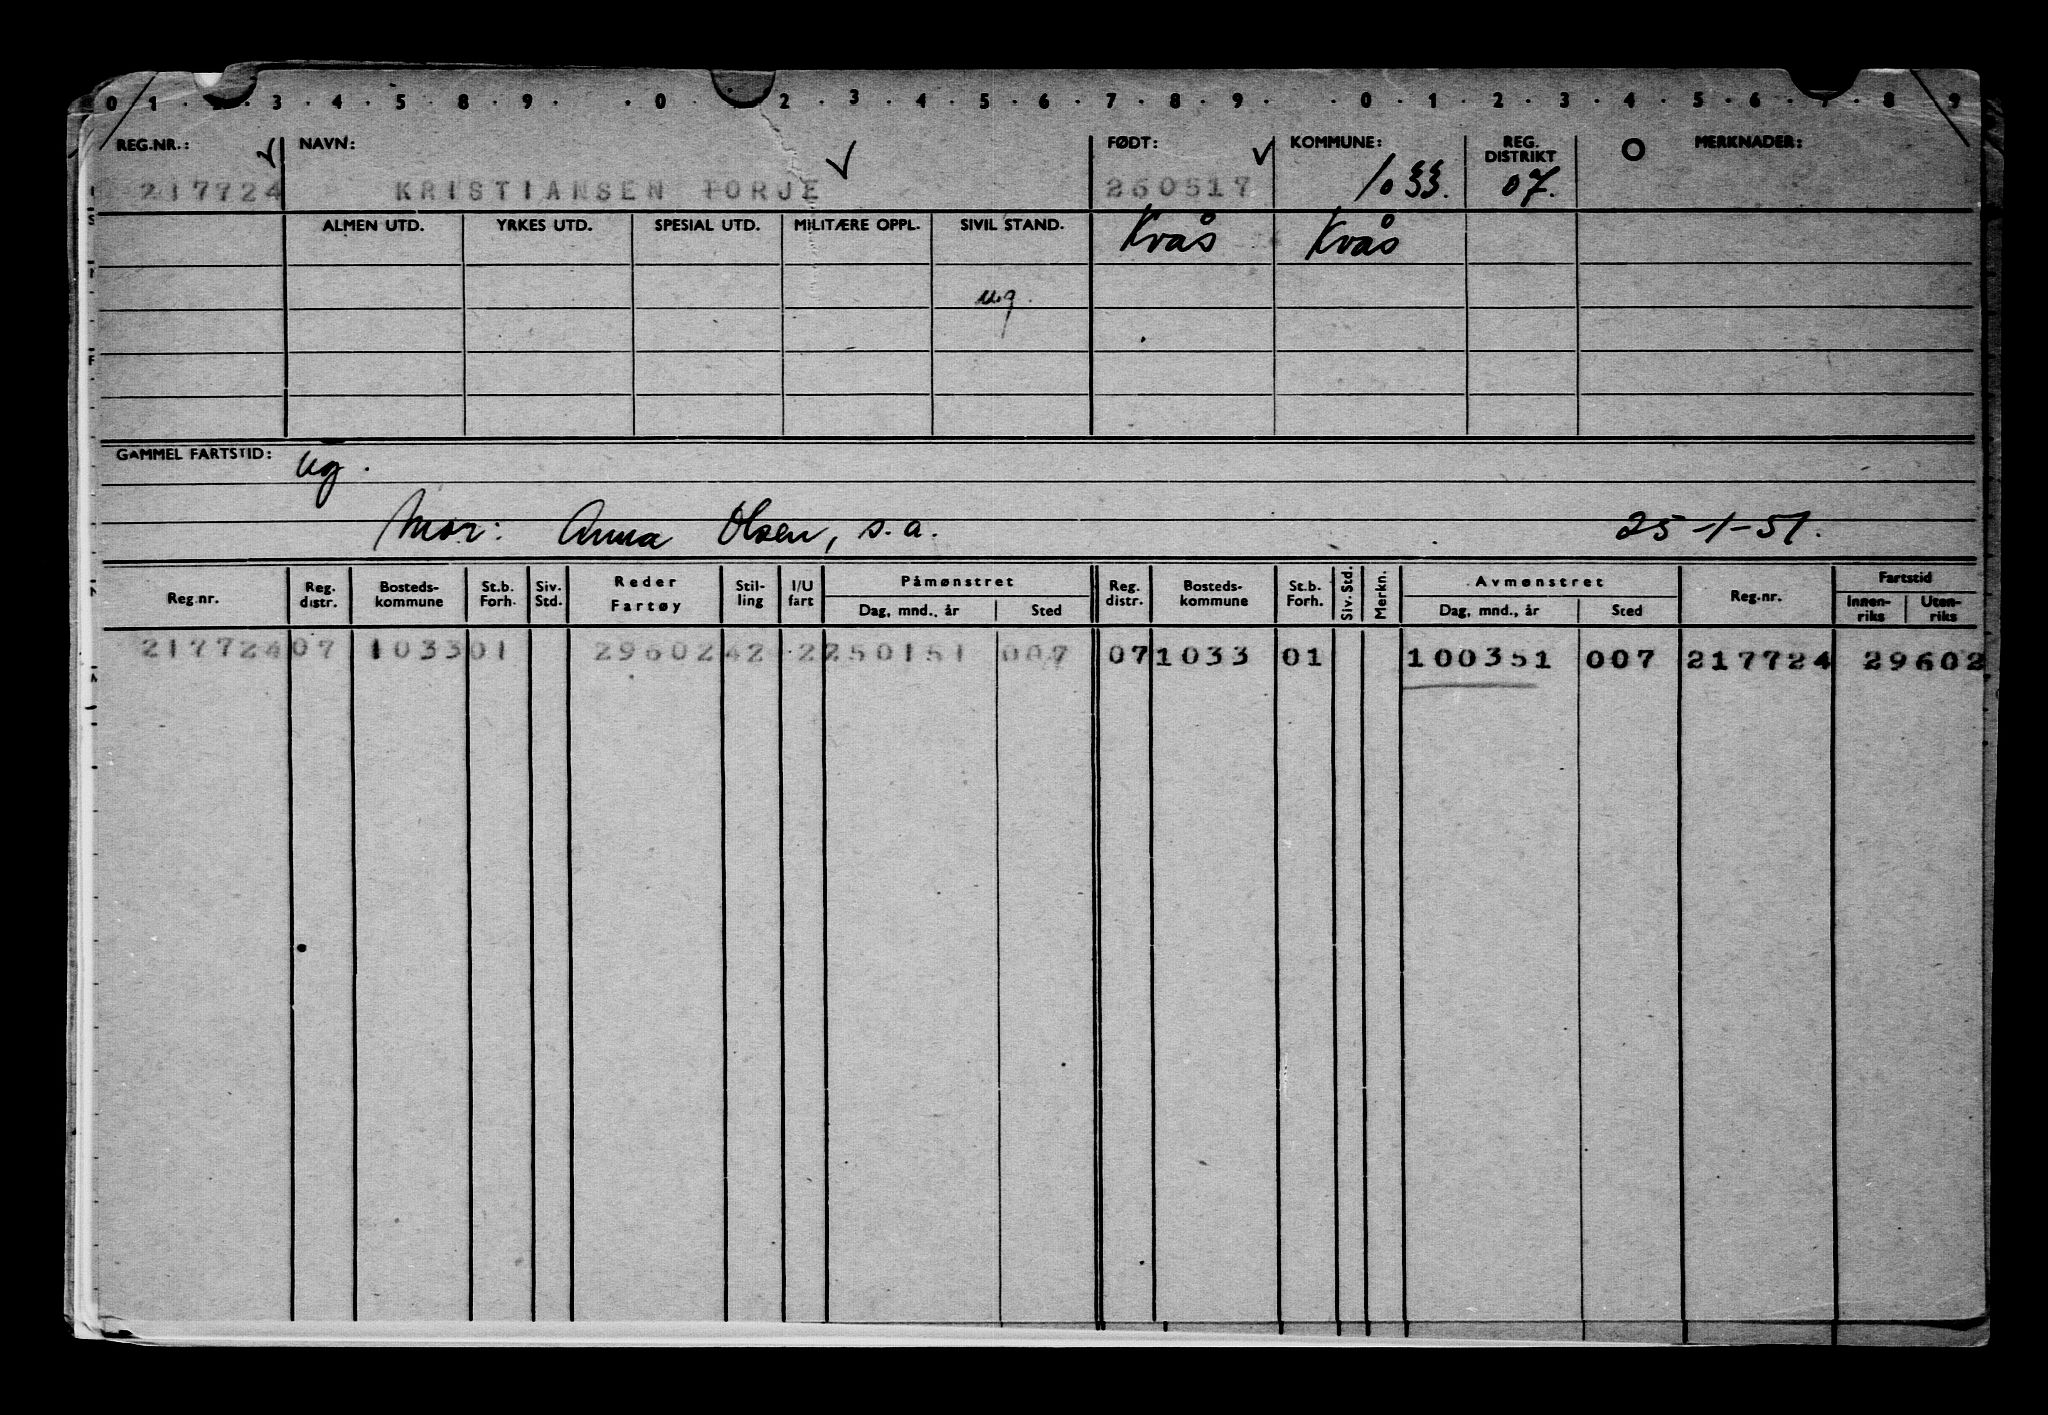 0 1 2 3 4 5 8 9 0 2 3 4 5 6 7 8 9 0 1 2 3 4 5 6 7 8 9
REG.NR.: NAVN: FØDT: KOMMUNE: REG. DISTRIKT MERKNADER:
217724 KRISTIANSEN TORJE 260517 1033. 07.
ALMEN UTD. YRKES UTD. SPESIAL UTD. MILITÆRE OPPL. SIVIL STAND. Kvås Kvås
u.g.
GAMMEL FARTSTID: ug.
Mor: Anna Olsen, s.a. 25-1-51.
Reg.nr. Reg. distr. Bosteds- kommune St.b. Forh. Siv. Std. Reder Fartøy Stil- ling I/U fart Påmønstret Dag, mnd., år Sted Reg. distr. Bosteds- kommune St.b. Forh. Siv. Std. Merkn. Avmønstret Dag, mnd., år Sted Reg.nr. Fartstid Innen- riks Uten- riks
217724 07 1033 01 29602 42 2 250151 007 07 1033 01 100351 007 217724 29602